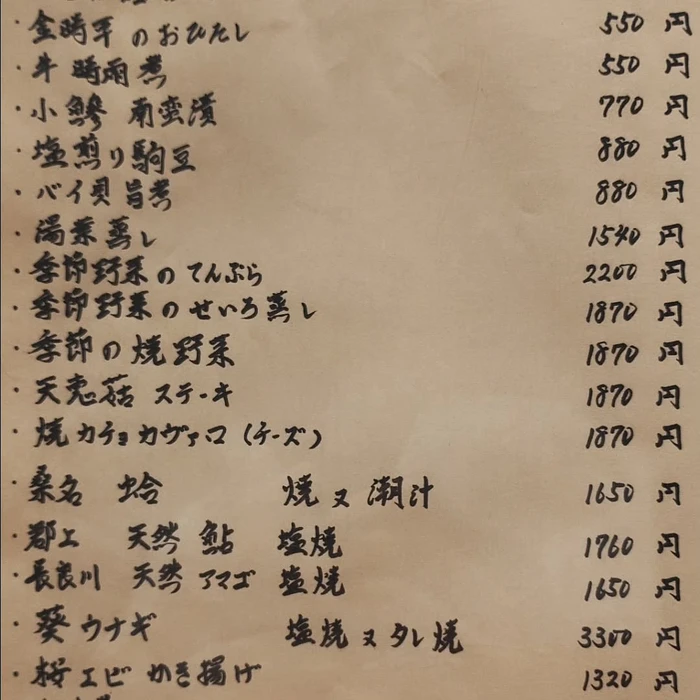 ・金時草のおひたし 550円
・牛 時雨煮 550円
・小鯵 南蛮漬 770円
・塩煎り駒豆 880円
・バイ貝旨煮 880円
・湯葉蒸し 1540円
・季節野菜のてんぷら 2200円
・季節野菜のせいろ蒸し 1870円
・季節の焼野菜 1870円
・天恵菇 ステーキ 1870円
・焼カチョカヴァロ(チーズ) 1870円
・桑名 蛤 焼又潮汁 1650円
・郡上 天然 鮎 塩焼 1760円
・長良川 天然 アマゴ 塩焼 1650円
・葵ウナギ 塩焼又タレ焼 3300円
・桜エビ かき揚げ 1320円